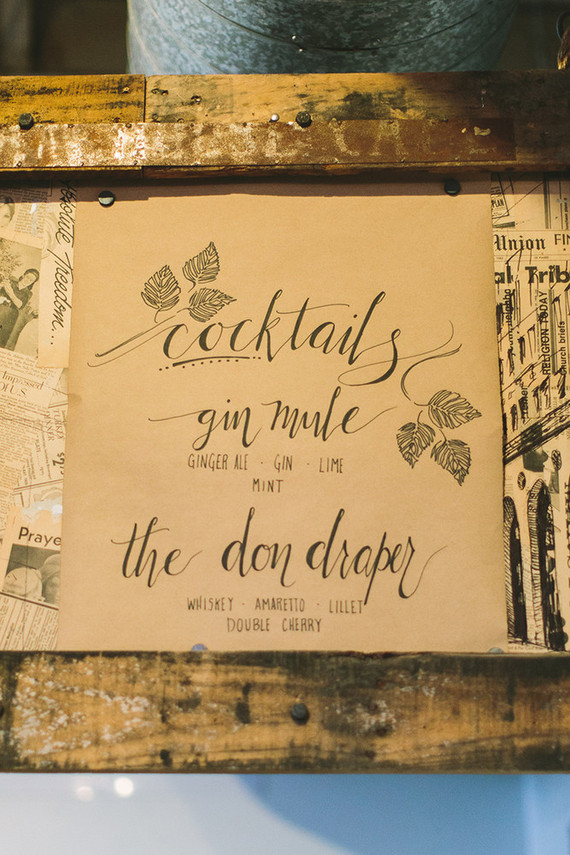 cocktails
gin mule
GINGER ALE · GIN · LIME
MINT
the don draper
WHISKEY · AMARETTO · LILLET
DOUBLE CHERRY
freedom...
Praye
PLAN
Union FIN
al Trib
RELIGION TODAY
Church briefs